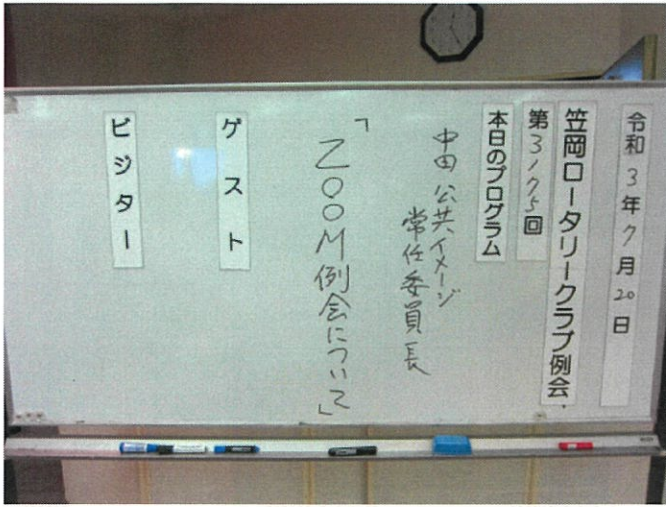 令和3年7月20日
笠岡ロータリークラブ例会
第3175回
本日のプログラム
中田 公共イメージ
常任委員長
「ZOOM例会について」
ゲスト
ビジター